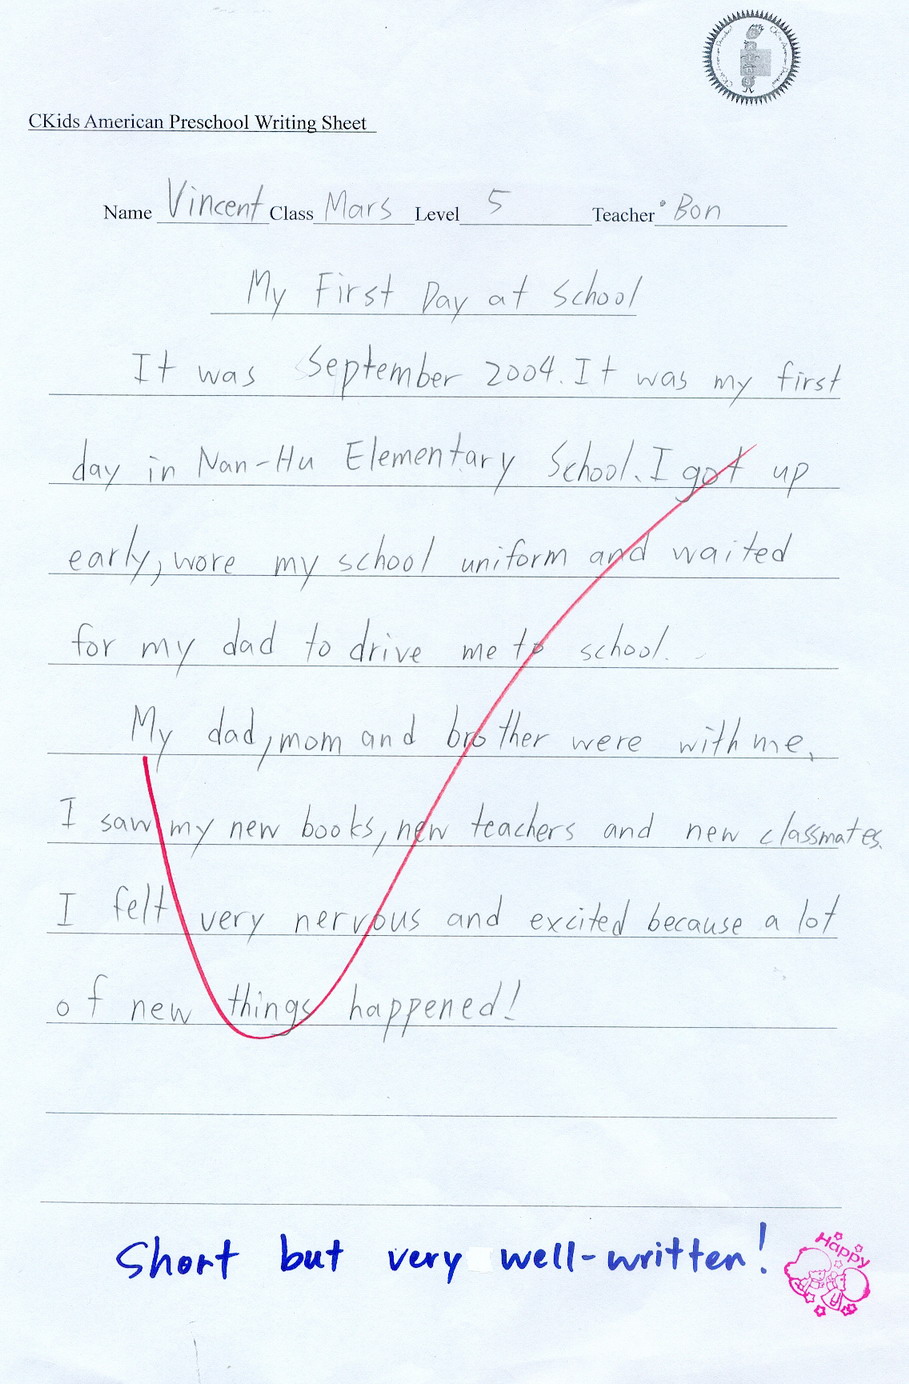 CKids American Preschool Writing Sheet
Name Vincent Class Mars Level 5 Teacher Bon
My First Day at School
It was September 2004. It was my first
day in Nan-Hu Elementary School. I got up
early, wore my school uniform and waited
for my dad to drive me to school.
My dad, mom and brother were with me.
I saw my new books, new teachers and new classmates.
I felt very nervous and excited because a lot
of new things happened!
Short but very well-written!
Happy